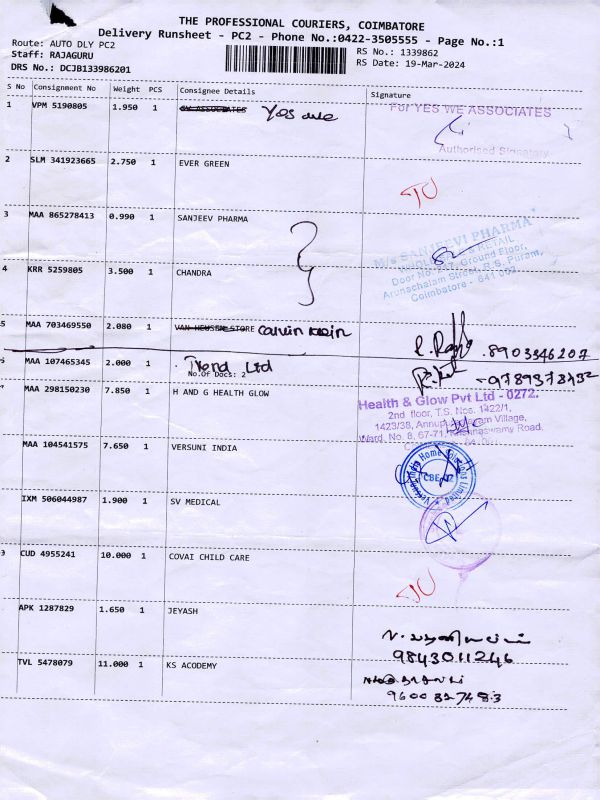 THE PROFESSIONAL COURIERS, COIMBATORE
Delivery Runsheet - PC2 - Phone No.:0422-3505555 - Page No.:1
Route: AUTO DLY PC2
Staff: RAJAGURU
DRS No.: DCJB133986201
RS No.: 1339862
RS Date: 19-Mar-2024
S No Consignment No Weight PCS Consignee Details Signature
1 VPM 5190805 1.950 1 Yes we For YES WE ASSOCIATES
Authorised Signatory
2 SLM 341923665 2.750 1 EVER GREEN TU
3 MAA 865278413 0.990 1 SANJEEV PHARMA M/s SANJEEVI PHARMA
RETAIL
Ground Floor,
Arunachalam Street, R.S. Puram,
Coimbatore - 641 002
4 KRR 5259805 3.500 1 CHANDRA
5 MAA 703469550 2.080 1 VAN HEUSEN STORE Calvin klein 8903346207
MAA 107465345 2.000 1 Trend Ltd
No.Of Docs: 2
MAA 298150230 7.850 1 H AND G HEALTH GLOW Health & Glow Pvt Ltd - 0272.
2nd floor, T.S. Nos. 1422/1,
1423/38, Village,
Ward. No. 8, 67-71, Krishnaswamy Road.
MAA 104541575 7.650 1 VERSUNI INDIA Versuni India Home Solutions Limited
CBE-02
IXM 506044987 1.900 1 SV MEDICAL
CUD 4955241 10.000 1 COVAI CHILD CARE TU
APK 1287829 1.650 1 JEYASH
9843011246
TVL 5478079 11.000 1 KS ACODEMY
9600327483